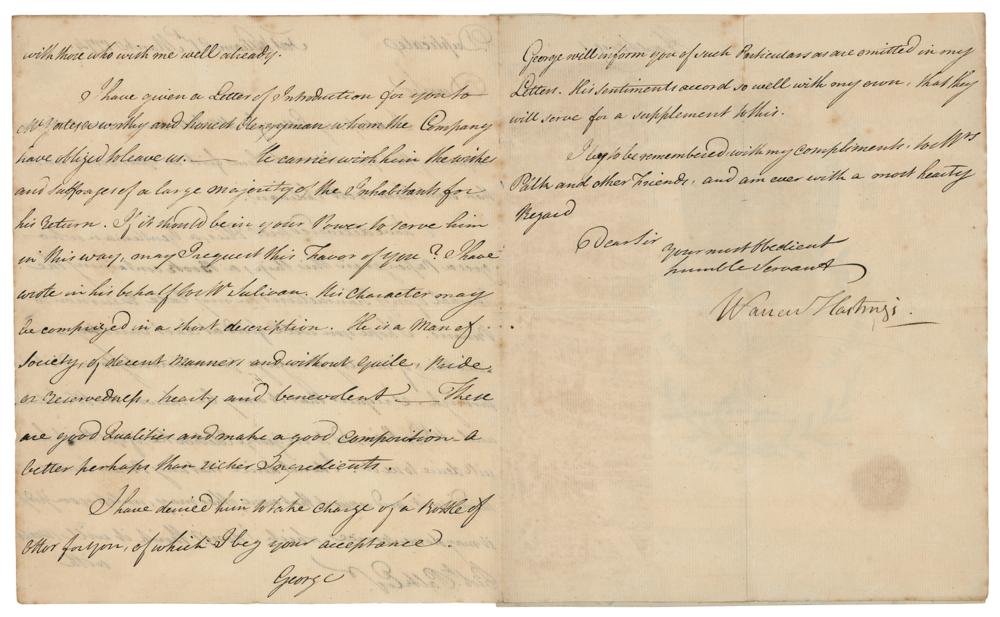 with those who wish me well already.
I have given a Letter of Introduction for you to
Mr Yates a worthy and honest Clergyman whom the Company
have obliged to leave us. — He carries with him the wishes
and suffrages of a large majority of the Inhabitants for
his return. If it should be in your Power to serve him
in this way, may I request this Favor of you? I have
wrote in his behalf to Mr Sulivan. His Character may
be comprized in a short description. He is a Man of
Society, of decent Manners and without Guile, Pride
or Reservedness, hearty and benevolent — These
are good Qualities and make a good Composition a
better perhaps than richer Ingredients.
I have desired him to take charge of a Bottle of
Ottor for you, of which I beg your acceptance.
George
George will inform you of such Particulars as are omitted in my
Letters. His Sentiments accord so well with my own, that they
will serve for a supplement to this.
I beg to be remembered with my compliments to Mrs
Palk and other Friends, and am ever with a most hearty
Regard
Dear Sir
Your most Obedient
humble Servant
Warren Hastings.